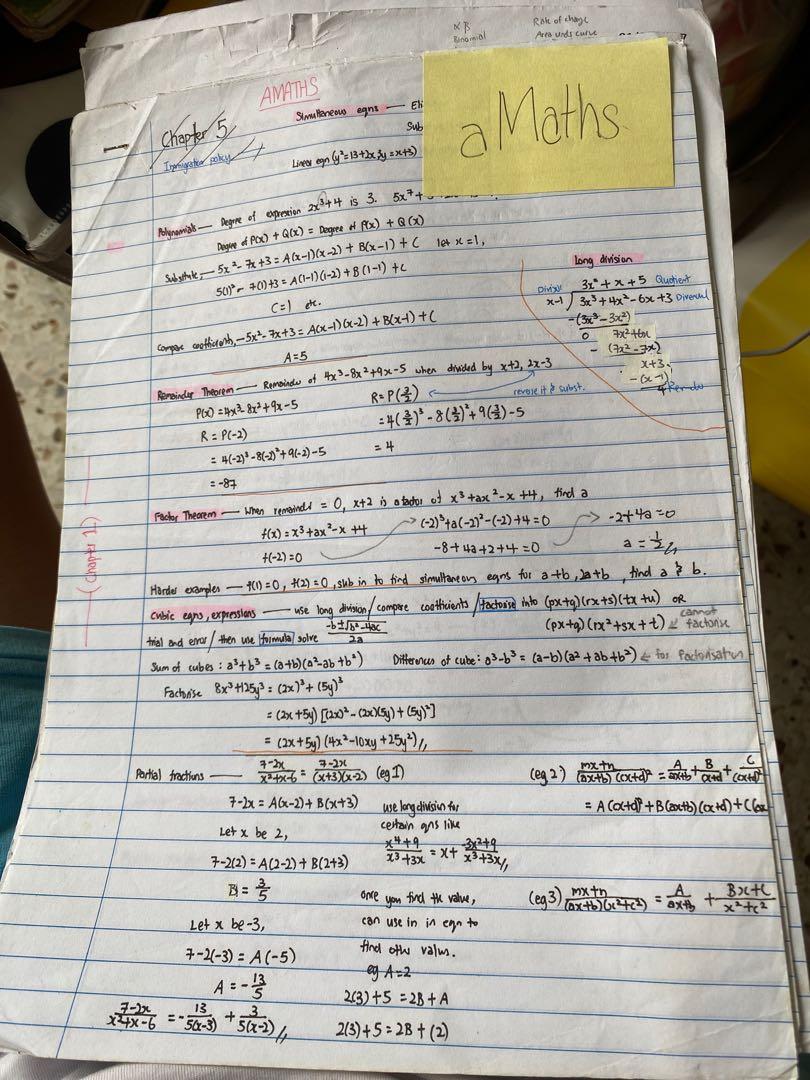 αB Rate of change
Binomial Area under curve
AMATHS
aMaths
Chapter 5
Immigration policy
Simultaneous eqns — Eli
Sub
Linear eqn (y²=13+2x, y=x+3)
Polynomials — Degree of expression 2x³+4 is 3. 5x⁷+
Degree of P(x) + Q(x) = Degree of P(x) + Q(x)
Substitute, — 5x²-7x+3 = A(x-1)(x-2) + B(x-1) + C let x=1,
5(1)² - 7(1)+3 = A(1-1)(1-2) + B(1-1) + C
C=1 etc.
Compare coefficients, — 5x²-7x+3 = A(x-1)(x-2) + B(x-1) + C
A=5
Long division
3x² + x + 5 Quotient
x-1 ) 3x³ + 4x² - 6x + 3
-(3x³ - 3x²)
0 7x² + 6x
- (7x² - 7x)
x+3
- (x-1)
4
Remainder Theorem — Remainder of 4x³-8x²+9x-5 when divided by x+2, 2x-3
P(x) = 4x³-8x²+9x-5 R = P(3/2) reverse it & subst.
R = P(-2) = 4(3/2)³ - 8(3/2)² + 9(3/2) - 5
= 4(-2)³-8(-2)²+9(-2)-5 = 4
= -87
(Chapter 1)
Factor Theorem — When remainder = 0, x+2 is a factor of x³+ax²-x+4, find a
f(x) = x³+ax²-x+4 (-2)³+a(-2)²-(-2)+4=0 -2+4a=0
f(-2)=0 -8+4a+2+4=0 a = 1/2 //
Harder examples — f(1)=0, f(2)=0, sub in to find simultaneous eqns for a+b, 2a+b, find a & b.
Cubic eqns, expressions — use long division/compare coefficients/factorise into (px+q)(rx+s)(tx+u) or
trial and error/then use formula solve -b±√b²-4ac/2a (px+q)(rx²+sx+t) ← cannot factorise
Sum of cubes: a³+b³ = (a+b)(a²-ab+b²) Differences of cube: a³-b³ = (a-b)(a²+ab+b²) ← for factorisation
Factorise 8x³+125y³ = (2x)³+(5y)³
= (2x+5y) [(2x)²-(2x)(5y)+(5y)²]
= (2x+5y)(4x²-10xy+25y²) //
Partial fractions — 7-2x/x²+x-6 = 7-2x/(x+3)(x-2) (eg 1) (eg 2) mx+n/(ax+b)(cx+d)² = A/ax+b + B/cx+d + C/(cx+d)²
7-2x = A(x-2) + B(x+3) = A(cx+d)² + B(ax+b)(cx+d) + C(ax
Let x be 2,
7-2(2) = A(2-2) + B(2+3)
B = 3/5
Let x be -3,
7-2(-3) = A(-5)
A = -13/5
7-2x/x²+x-6 = -13/5(x-3) + 3/5(x-2) //
use long division for
certain qns like
x⁴+9/x³+3x = x + -3x²+9/x³+3x //
once you find the value,
can use in in eqn to
find other values.
eg A=2
2(3)+5 = 2B+A
2(3)+5 = 2B+(2)
(eg 3) mx+n/(ax+b)(x²+c²) = A/ax+b + Bx+C/x²+c²